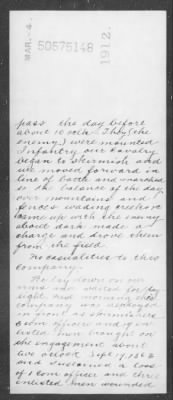 MAR. -4.
50575148
1912.
pass the day before
about 10 oclk. They (the
enemy) were mounted
Infantry our Cavalry
began to skirmish and
we moved forward in
line of battle and marched
so the balance of the day
over mountains and
fences wading creeks
came up with the enemy
about dark made a
charge and drove them
from the field.
No casualties to this
company.
We lay down on our
arms and waited for day
light. And morning this
company was deployed
in front as skirmishers
2 com officers and 19 en
listed men brought on
the engagement about
two oclock Sept 19, 1863
and sustained a loss
of 1 com officer and three
enlisted men wounded